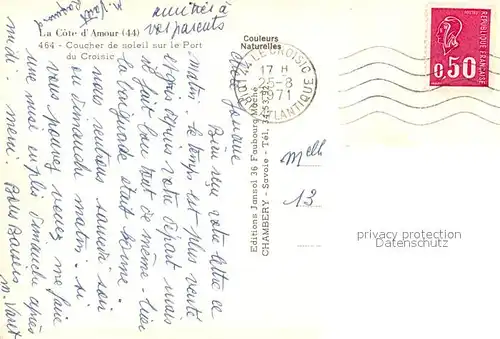 La Côte d'Amour (44)
464 - Coucher de soleil sur le Port
du Croisic
amitiés à
vos parents
Couleurs
Naturelles
LE CROISIC
17 H
25-8
1971
LOIRE ATLANTIQUE
0,50
RÉPUBLIQUE FRANÇAISE
Editions Jansol 36 Faubourg Maché
CHAMBERY - Savoie - Tél. 34.53.32
Melle
13
Bien reçu votre lettre ce
matin. Le temps est plus venté
depuis votre départ mais
il fait bon tout de même - hier
la baignade était bonne
nous rentrons samedi soir
ou dimanche matin. si
vous pouvez venez me faire
une mise en plis dimanche après
midi. merci. Bons Baisers
M. Varet
privacy protection
Datenschutz